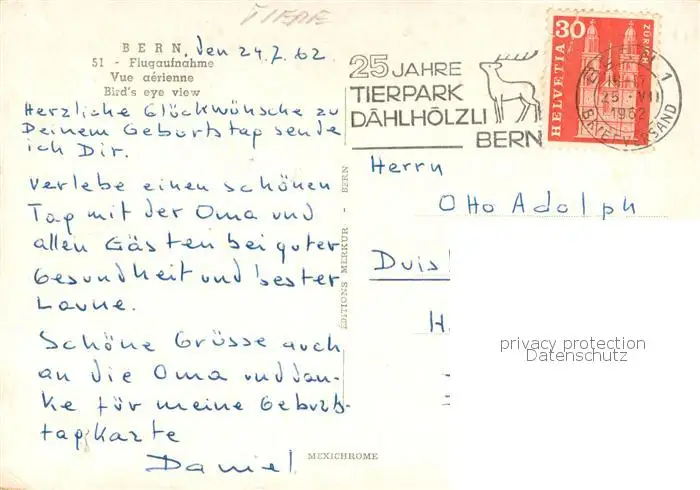 TIERE
BERN, den 24.7.62
51 - Flugaufnahme
Vue aérienne
Bird's eye view
Herzliche Glückwünsche zu
Deinem Geburtstag sende
ich Dir.
Verlebe einen schönen
Tag mit der Oma und
allen Gästen bei guter
Gesundheit und bester
Laune.
Schöne Grüsse auch
an die Oma und dan-
ke für meine Geburts-
tagkarte
Daniel
EDITIONS MERKUR - BERN
MEXICHROME
25 JAHRE
TIERPARK
DÄHLHÖLZLI
BERN
30
HELVETIA
ZÜRICH
1
25. VII
1962
BRIEFVERSAND
Herrn
Otto Adolph
Duis
H
privacy protection
Datenschutz